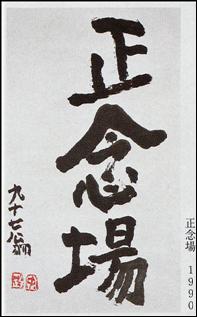 正念場
九十七翁
正念場 1990